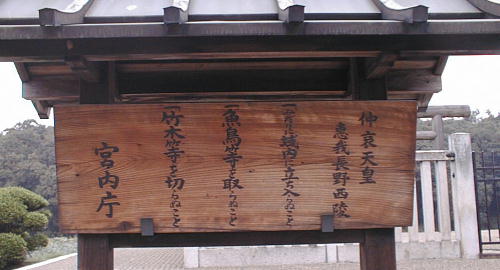 仲哀天皇
惠我長野西陵
一、みだりに域内に立ち入らぬこと
一、魚鳥等を取らぬこと
一、竹木等を切らぬこと
宮内庁